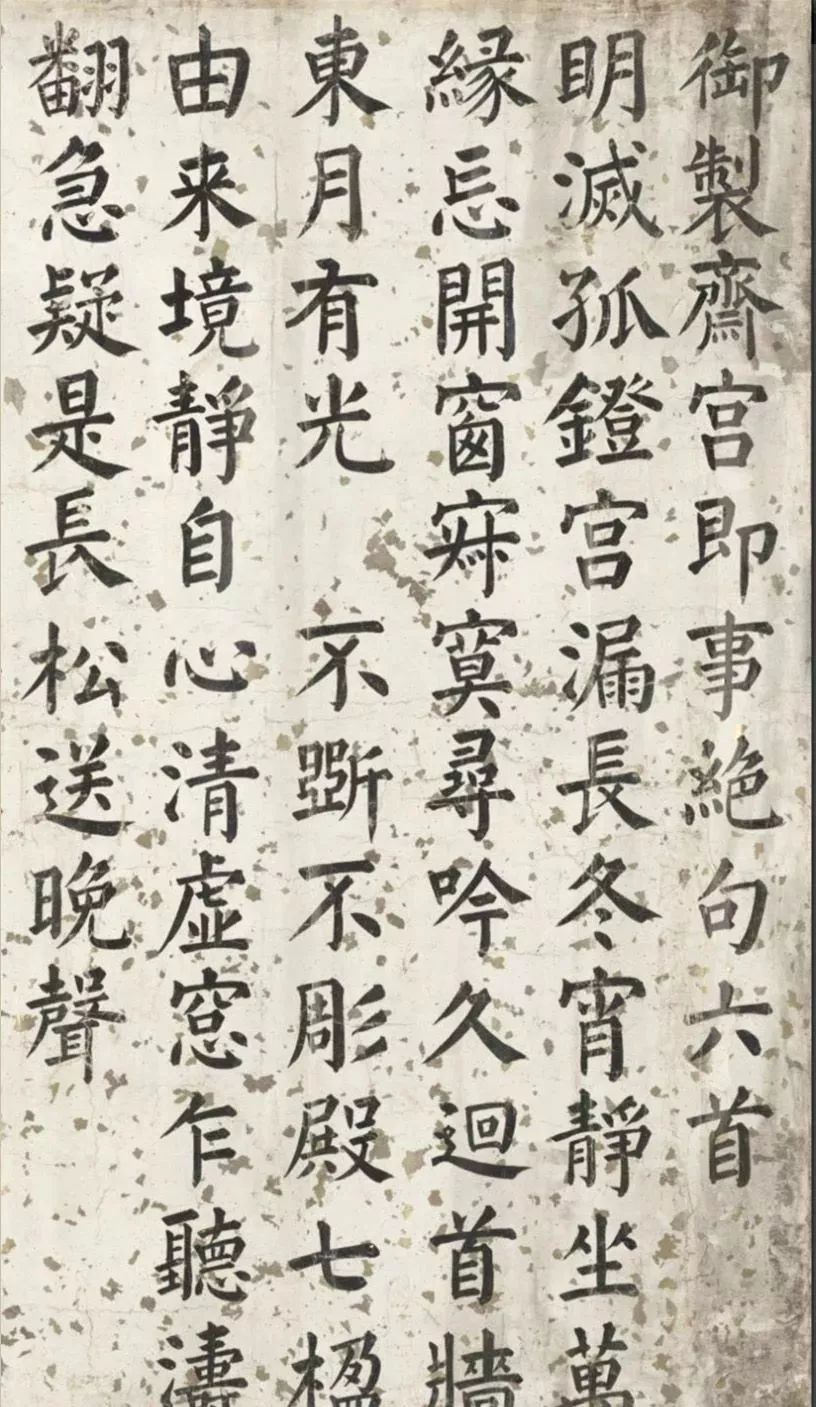 御製齋宮即事絶句六首
明滅孤鐙宮漏長冬宵靜坐萬
緣忘開窗寂寞尋吟久迴首牆
東月有光 不斲不彫殿七楹
由来境靜自心清虛窓乍聽濤
翻急疑是長松送晚聲